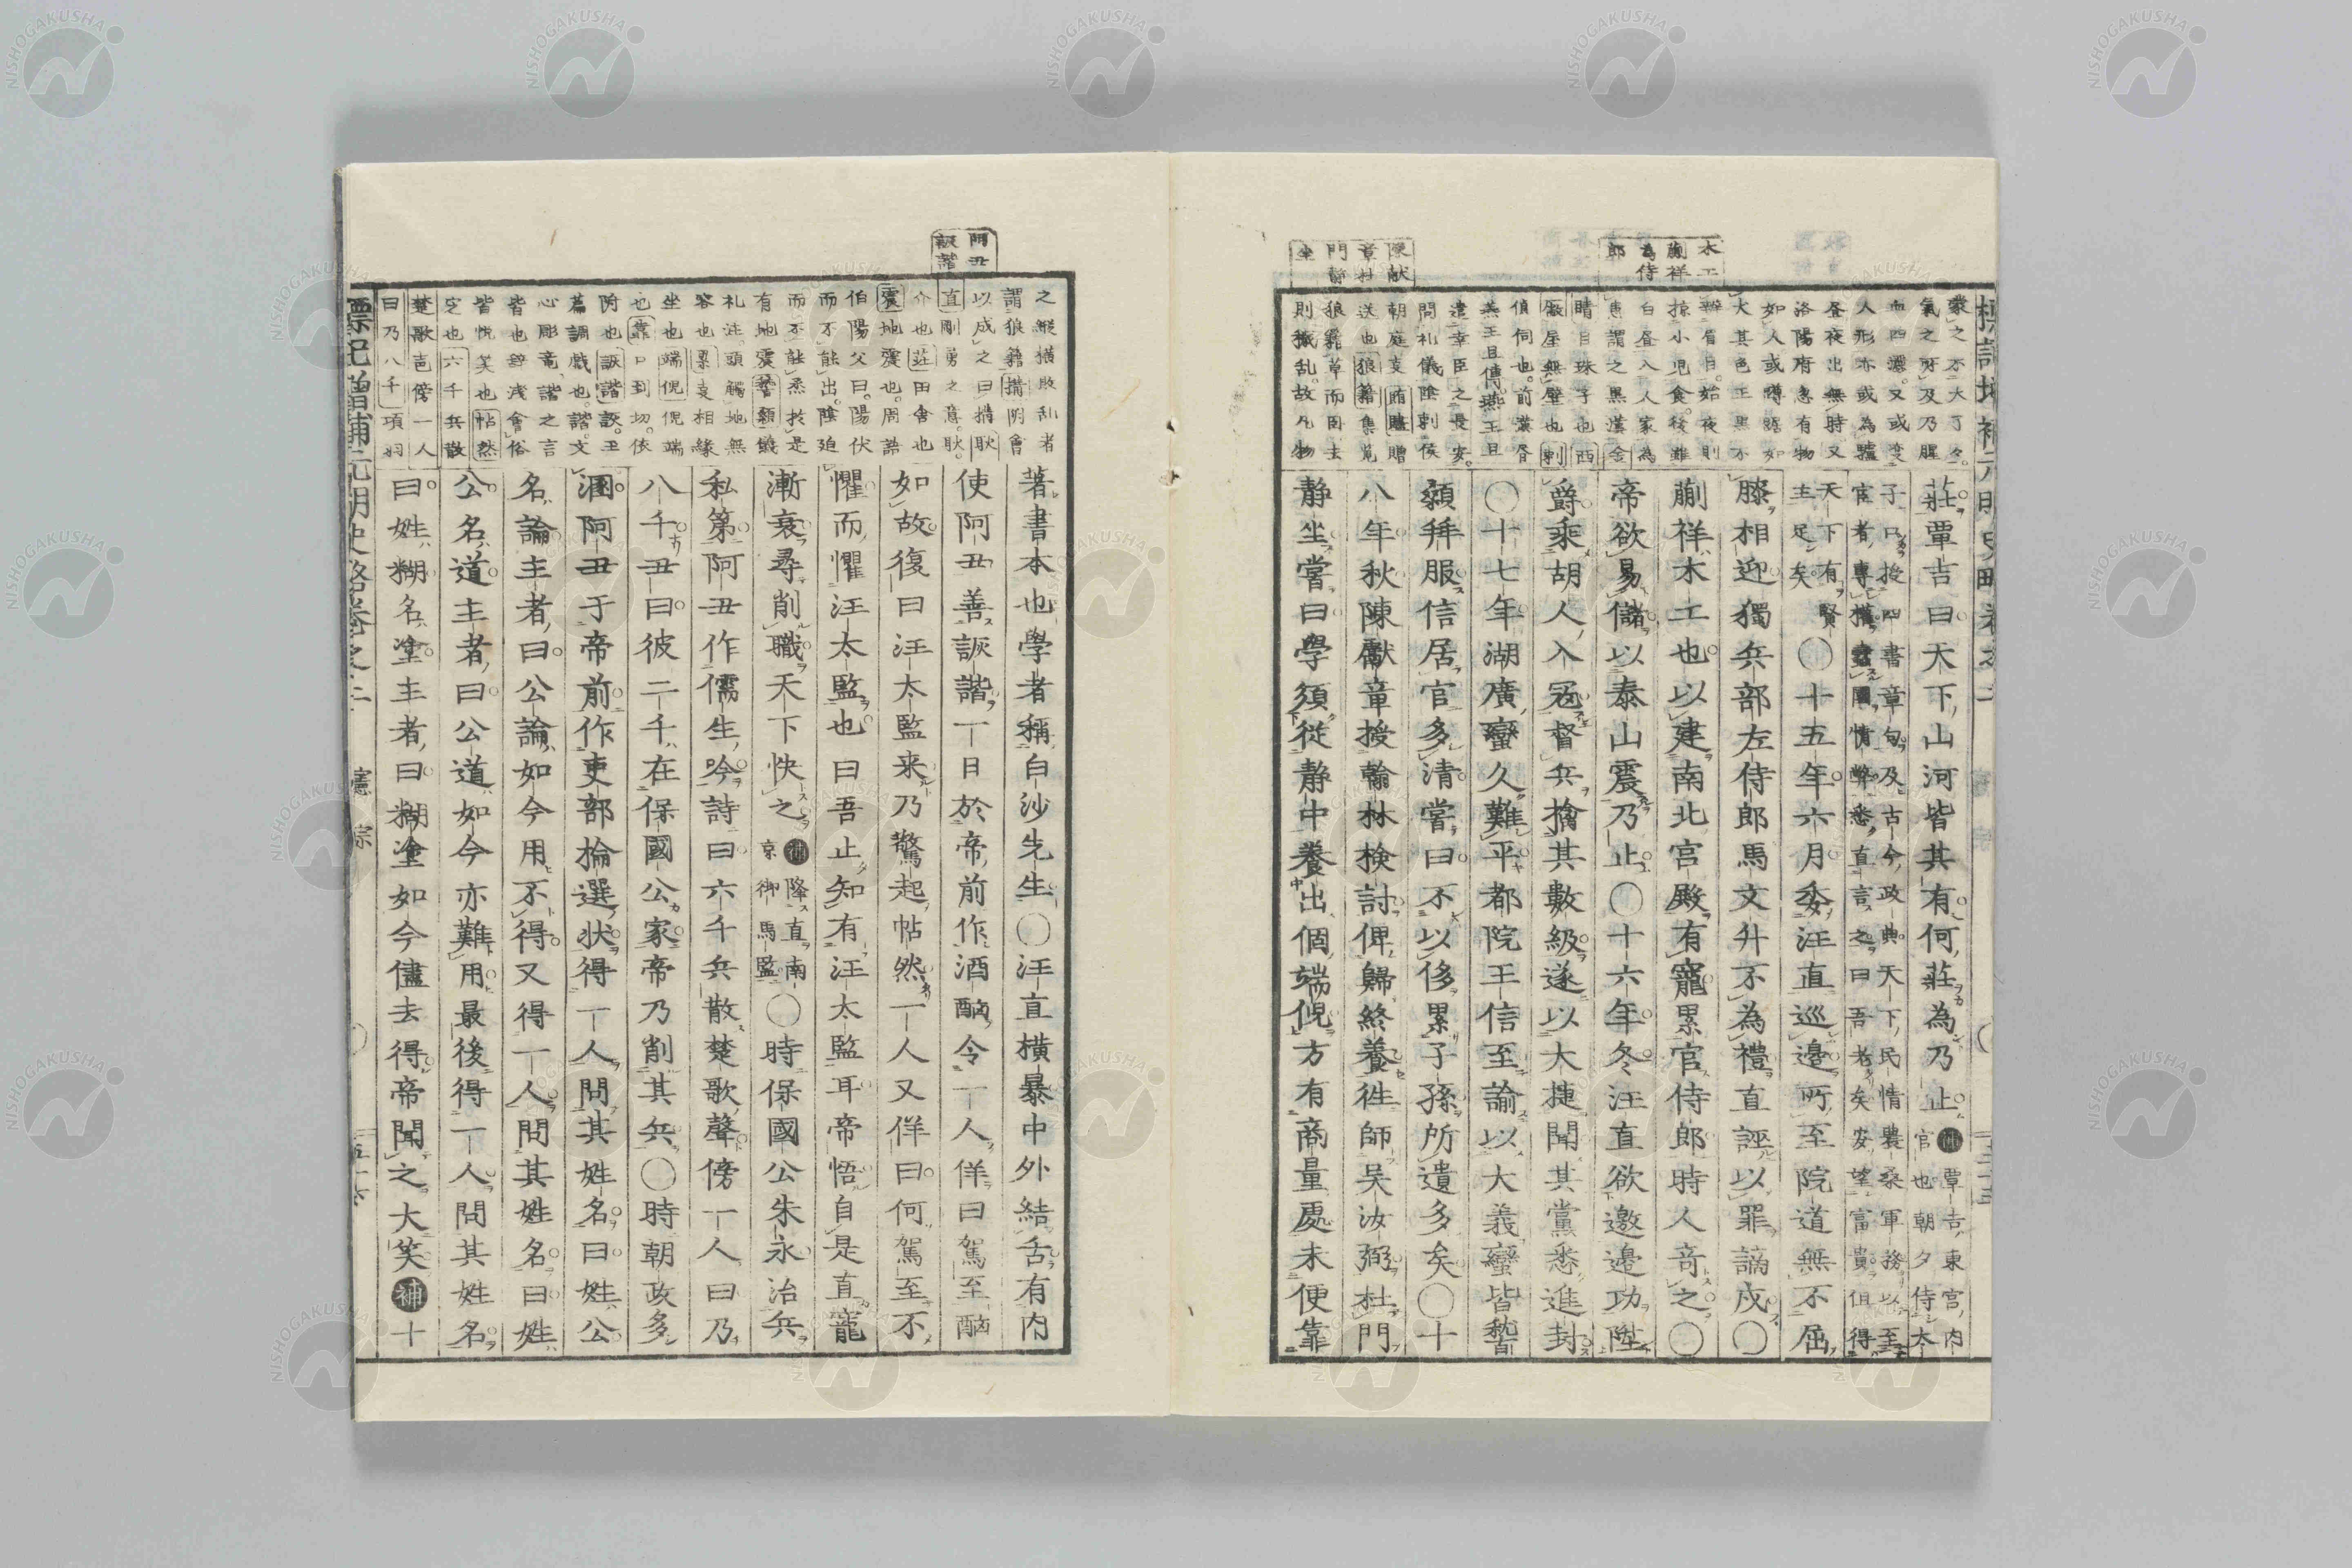 木工
蒯祥
為侍
郎
陳献
章杜
門靜
坐
氣之所及乃腥
血四灑又或変
人形亦或為驢
昼夜出無時又
洛陽府忽有物
如人或蹲踞如
大其色正黒不
辨眉目始夜則
掠小児食後雖
白昼入人家為
患謂之黒漢
睛目珠子也
廠屋無壁也
偵伺也前漢
燕王旦傳燕王旦
遣幸臣之長安
問礼儀陰刺侯
朝庭事賄賂贈
送也狼籍集覧
狼籍草而臥去
則穢乱故凡物
莊覃吉曰天下山河皆其有何莊為乃止
補覃吉東宮内
官也朝夕侍太
子口授四書章句及古今政典天下民情農桑軍務以至
宦者専權蠧國情弊悉直言之曰吾老矣安望富貴但得
天下有賢
主足矣
○十五年六月委汪直巡邊所至院道無不屈
膝相迎獨兵部左侍郎馬文升不為禮直誣以罪謫戍○
蒯祥木工也以建南北宮殿有寵累官侍郎時人竒之○
帝欲易儲以泰山震乃止○十六年冬汪直欲邀邊功陞
爵乘胡人入冦督兵擒其數級遂以大捷聞其黨悉進封
○十七年湖廣蠻久難平都院王信至諭以大義蠻皆稽
顙拜服信居官多清嘗曰不以侈累子孫所遺多矣○十
八年秋陳獻章授翰林檢討俾歸終養徃師吴汝弼杜門
靜坐嘗曰學須従靜中養出個端倪方有商量處未便靠
阿丑
詼諧
之縦横敗乱者
謂狼籍搆附會
以成之曰搆耿
直剛勇之意耿
介也莊田舎也
震地震也周語
伯陽父曰陽伏
而不能出陰迫
而不能烝於是
有地震稽顙儀
礼注頭觸地無
容也累支相縁
坐也端倪倪端
也靠口到切依
附也詼諧詼丑
篇調戯也諧文
心彫竜諧之言
皆也辞浅會俗
皆悦笑也帖然
定也六千兵散
楚歌邑傍一人
曰乃八千項羽
著書本也學者稱白沙先生○汪直橫暴中外結舌有内
使阿丑善詼諧一日於帝前作酒酗令一人佯曰駕至酗
如故復曰汪太監来乃驚起帖然一人又佯曰何駕至不
懼而懼汪太監也曰吾止知有汪太監耳帝悟自是直寵
漸衰尋削職天下快之
補降直南
京御馬監
○時保國公朱永治兵
私第阿丑作儒生吟詩曰六千兵散楚歌聲傍一人曰乃
八千丑曰彼二千在保國公家帝乃削其兵○時朝政多
溷阿丑于帝前作吏部掄選状得一人問其姓名曰姓公
名論主者曰公論如今用不得又得一人問其姓名曰姓
公名道主者曰公道如今亦難用最後得一人問其姓名
曰姓糊名塗主者曰糊塗如今儘去得帝聞之大笑補十
標記増補元明史略巻之二 憲宗